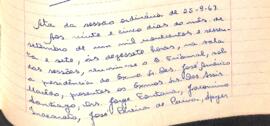 Ata da sessão ordinária de 25-9-67.
Aos vinte e cinco dias do mês de
setembro de um mil novecentos e sessen-
ta e sete, às dezessete horas, na sala
das sessões, reuniu-se o Tribunal, sob
a presidência do Exmo Sr. Des. José Américo
Macedo, presentes os Exmos Srs. Des. Assis
Santiago, Drs. Jorge Fontana, Jeronimo
José Pereira de Paiva,